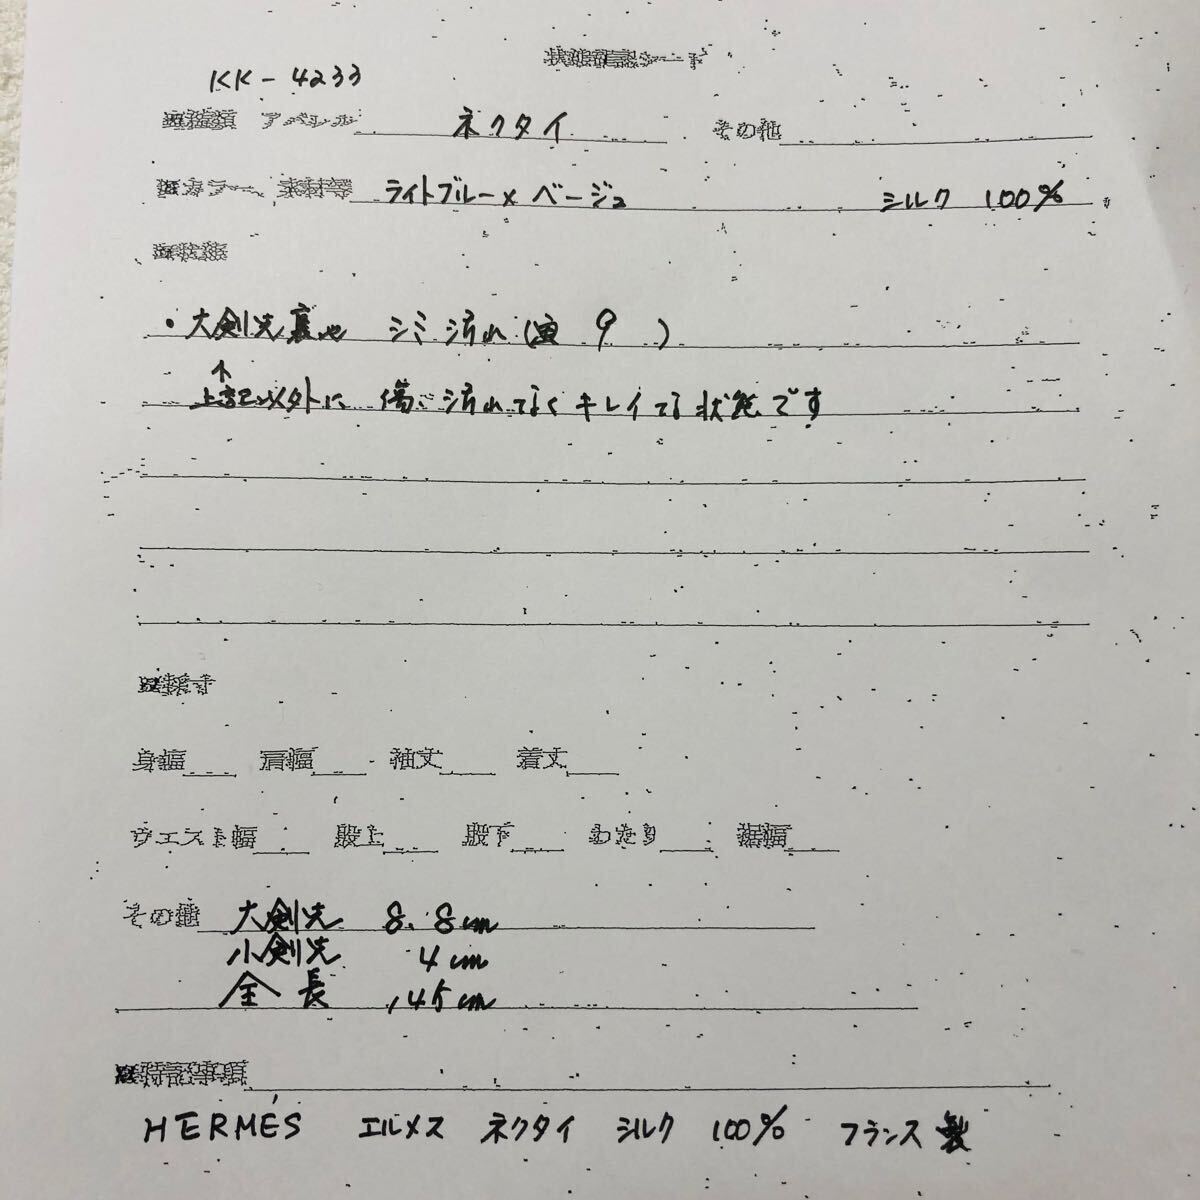 状態確認シート
KK-4233
■種類 アパレル ネクタイ その他
■カラー、素材等 ライトブルー×ベージュ シルク 100%
■状態
・大剣先裏に シミ 汚れ (画 9 )
↑
上記以外に 傷、汚れてなく キレイな 状態です
■採寸
身幅 肩幅 袖丈 着丈
ウエスト幅 股上 股下 わたり 裾幅
その他 大剣先 8.8cm
小剣先 4cm
全長 145cm
■特記事項
HERMÉS エルメス ネクタイ シルク 100% フランス製